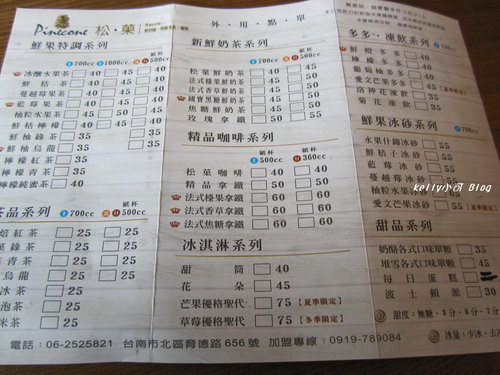 Pinecone 松菓
外・用・點・單
鮮果特調系列
700cc 1000cc 紙杯 500cc
冰釀水果茶 40 45
鮮桔茶 40 45
蔓越莓果茶 40 45
藍莓果茶 40
柚粒水果茶 35 50
鮮桔檸檬 40
鮮柚綠茶 35
鮮柚烏龍 35
檸檬紅茶 35
檸檬青茶 35
檸檬純蜜茶 40
茶品系列
700cc 紙杯 500cc
紅茶 25 25
菓綠茶 25 25
青茶 25 25
烏龍 25 25
冰茶 25
泡茶 25
米茶 25
新鮮奶茶系列
700cc 紙杯 500cc
松菓鮮奶茶 40 45
法式榛果鮮奶茶 45 50
法式香草鮮奶茶 45 50
國寶黑糖鮮奶茶 45 50
焦糖鮮奶茶 45 50
玫瑰拿鐵 50 55
精品咖啡系列
紙杯 500cc 紙杯 360cc
松菓咖啡 40 40
精品拿鐵 50 50
法式榛果拿鐵 60 60
法式香草拿鐵 60 60
法式焦糖拿鐵 60 60
冰淇淋系列
甜筒 40
花朵 45
芒果優格聖代 75 【夏季限定】
草莓優格聖代 75 【冬季限定】
多多・凍飲系列 700cc
鮮橙多多 40
檸檬多多 40
葡萄柚多多 40
愛文芒果多多 45 【夏季限定】
洛神花凍飲 35
菊花凍飲 35
鮮果冰砂系列 700cc
水果什錦冰砂 55
鮮桔子冰砂 55
藍莓冰砂 55
蔓越莓冰砂 55
柚粒水果冰砂
愛文芒果冰砂 55 【夏季限定】
kelly小可 Blog
甜品系列
奶酪各式口味單顆 35
堆雪各式口味單顆 45
每日蛋糕
波士頓派 30
甜度：無糖・3分・5分・7分
冰量：少冰・去冰
電話：06-2525821 台南市北區育德路656號 加盟專線：0919-789084